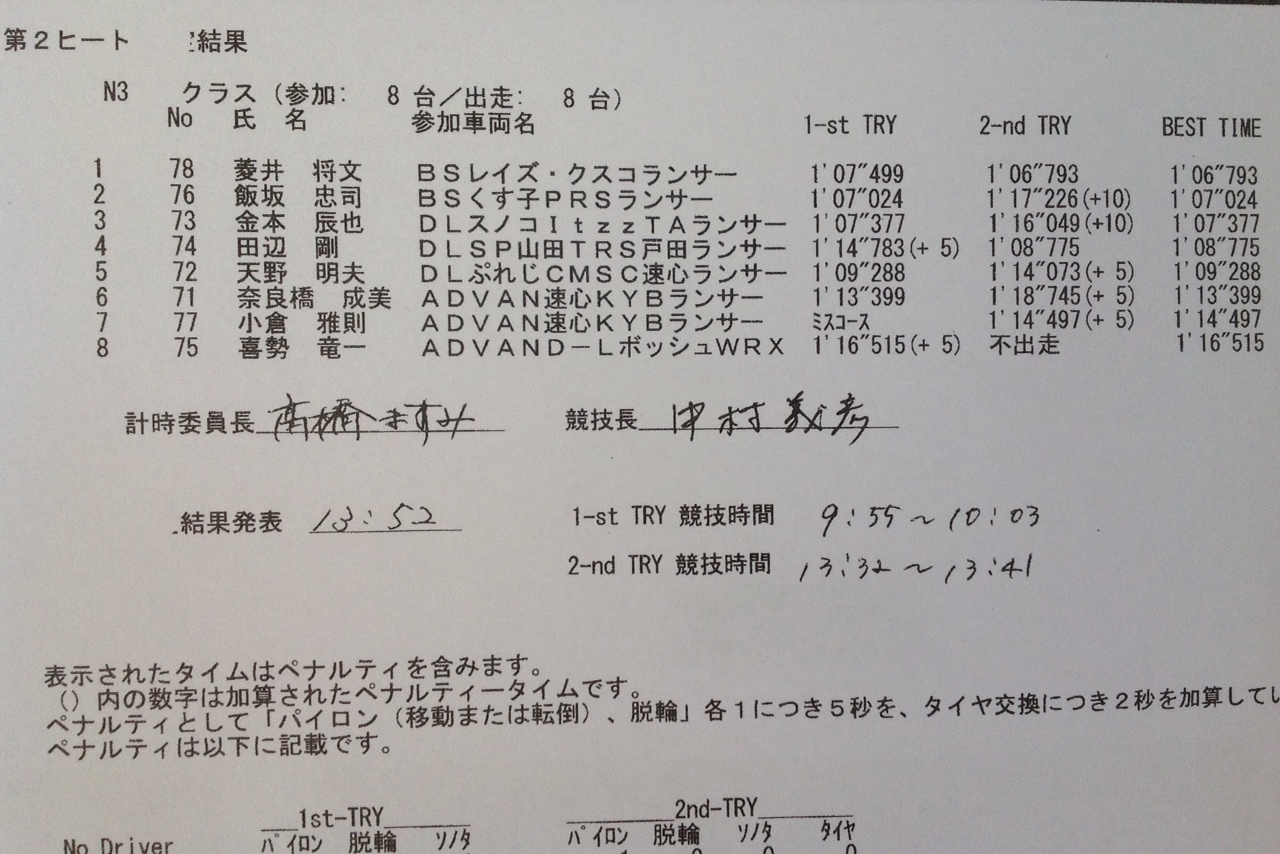 第2ヒート 結果
N3 クラス (参加: 8 台/出走: 8 台)
No 氏 名 参加車両名 1-st TRY 2-nd TRY BEST TIME
1 78 菱井 将文 BSレイズ・クスコランサー 1'07"499 1'06"793 1'06"793
2 76 飯坂 忠司 BSくす子PRSランサー 1'07"024 1'17"226(+10) 1'07"024
3 73 金本 辰也 DLスノコItzzTAランサー 1'07"377 1'16"049(+10) 1'07"377
4 74 田辺 剛 DLSP山田TRS戸田ランサー 1'14"783(+ 5) 1'08"775 1'08"775
5 72 天野 明夫 DLぷれじCMSC速心ランサー 1'09"288 1'14"073(+ 5) 1'09"288
6 71 奈良橋 成美 ADVAN速心KYBランサー 1'13"399 1'18"745(+ 5) 1'13"399
7 77 小倉 雅則 ADVAN速心KYBランサー ミスコース 1'14"497(+ 5) 1'14"497
8 75 喜勢 竜一 ADVAND-LボッシュWRX 1'16"515(+ 5) 不出走 1'16"515
計時委員長 高橋ますみ 競技長 中村義彦
結果発表 13:52 1-st TRY 競技時間 9:55~10:03
2-nd TRY 競技時間 13:32~13:41
表示されたタイムはペナルティを含みます。
()内の数字は加算されたペナルティータイムです。
ペナルティとして「パイロン(移動または転倒)、脱輪」各1につき5秒を、タイヤ交換につき2秒を加算してい
ペナルティは以下に記載です。
1st-TRY 2nd-TRY
No Driver パイロン 脱輪 ソノタ パイロン 脱輪 ソノタ タイヤ